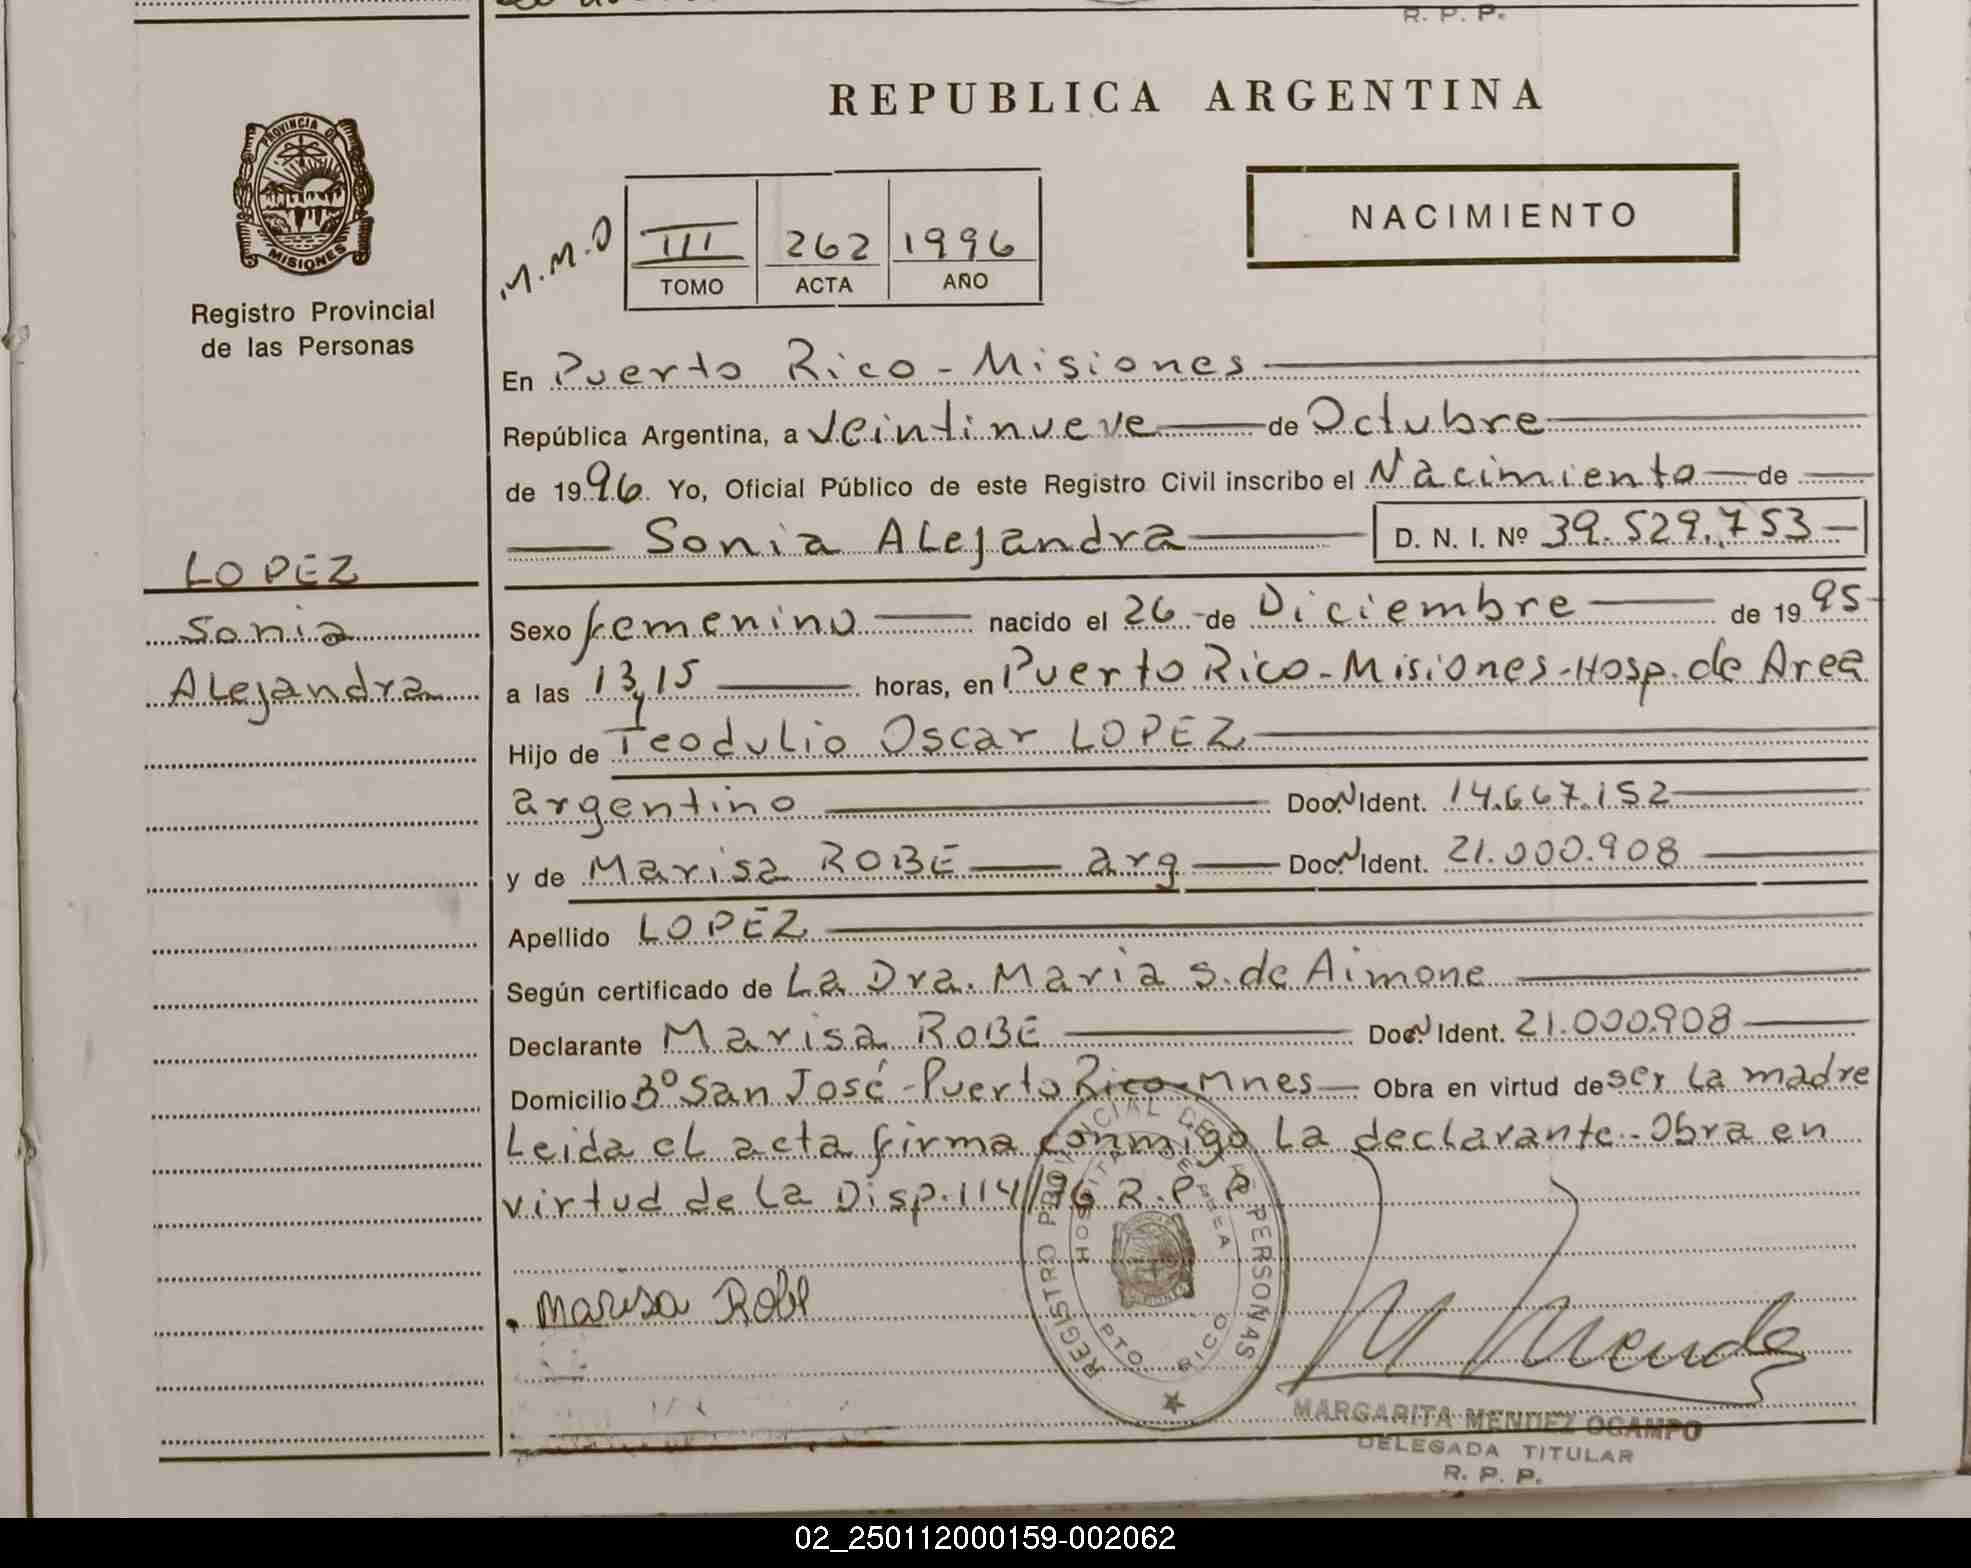 R. P. P.
REPUBLICA ARGENTINA
PROVINCIA DE
MISIONES
Registro Provincial
de las Personas
NACIMIENTO
M.M.O
III 262 1996
TOMO ACTA AÑO
En Puerto Rico - Misiones
República Argentina, a veintinueve de Octubre
de 1996. Yo, Oficial Público de este Registro Civil inscribo el Nacimiento de
Sonia ALejandra D. N. I. Nº 39.529.753
LOPEZ
Sonia
ALejandra
Sexo femenino nacido el 26 de Diciembre de 1995
a las 13,15 horas, en Puerto Rico - Misiones - Hosp. de Area
Hijo de Teodulio Oscar LOPEZ
argentino Doc. N Ident. 14.667.152
y de Marisa ROBE arg Doc. N Ident. 21.000.908
Apellido LOPEZ
Según certificado de La Dra. Maria S. de Aimone
Declarante Marisa ROBE Doc. N Ident. 21.000.908
Domicilio Bº San José - Puerto Rico - Mnes Obra en virtud de ser La madre
Leida eL acta firma conmigo La declarante - Obra en
virtud de La Disp. 114/96 R.P.P.
REGISTRO PROVINCIAL DE LAS PERSONAS
HOSPITAL DE AREA
PTO. RICO
Marisa Robe
M Mendez
MARGARITA MENDEZ OCAMPO
DELEGADA TITULAR
R. P. P.
02_250112000159-002062